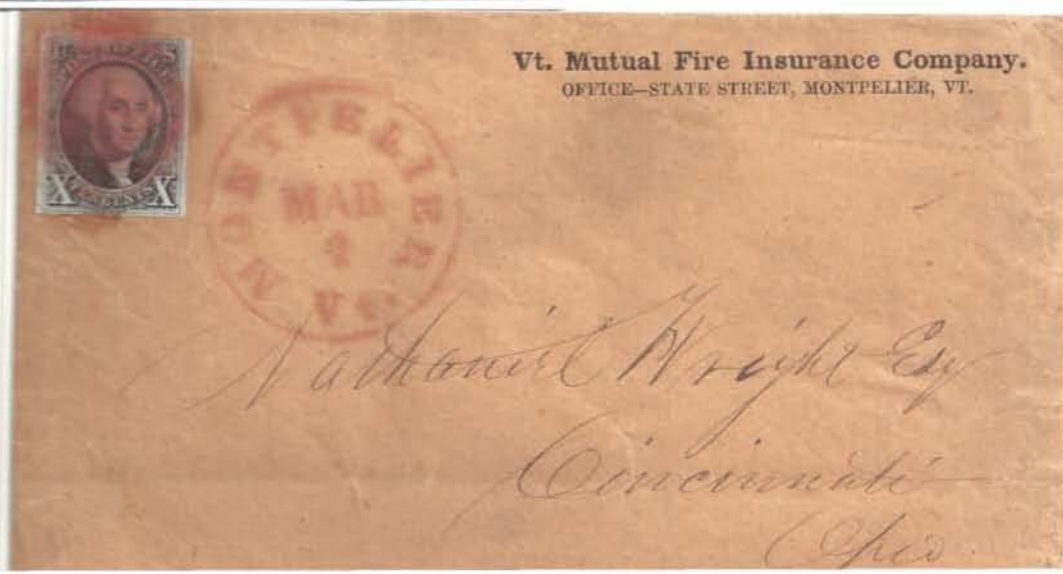 Vt. Mutual Fire Insurance Company.
OFFICE—STATE STREET, MONTPELIER, VT.
X X
MONTPELIER
MAR
Vt
Nathaniel Wright Esq
Cincinnati
Ohio